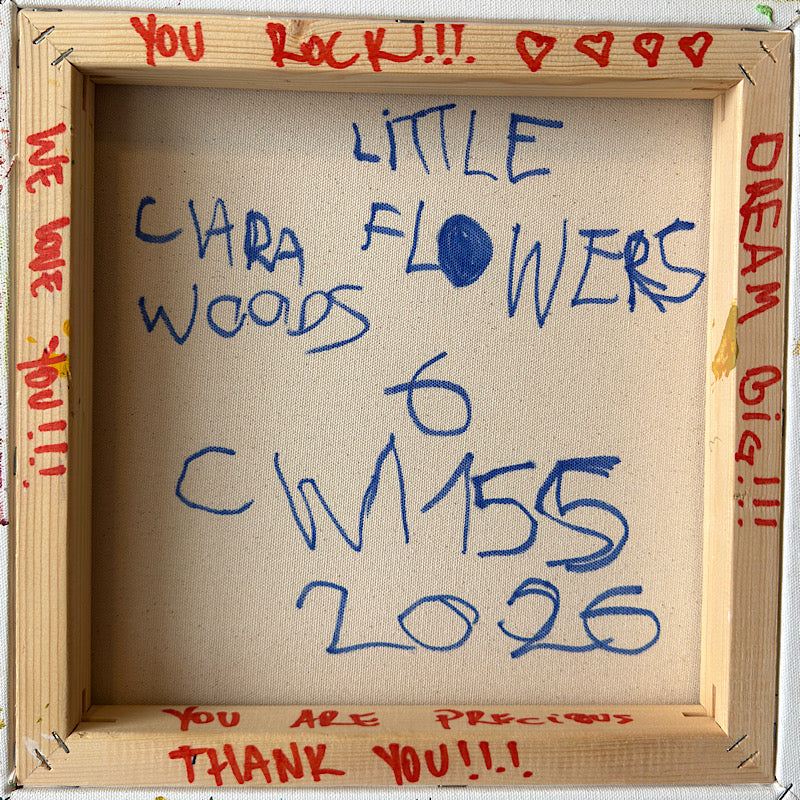 YOU ROCK!!!. ♡♡♡♡
WE LOVE YOU!!!!
LiTTLE
FLOWERS
CLARA
WOODS
6
CW1155
2026
DREAM BiG!!!
YOU ARE PRECiOUS
THANK YOU!!!.!.